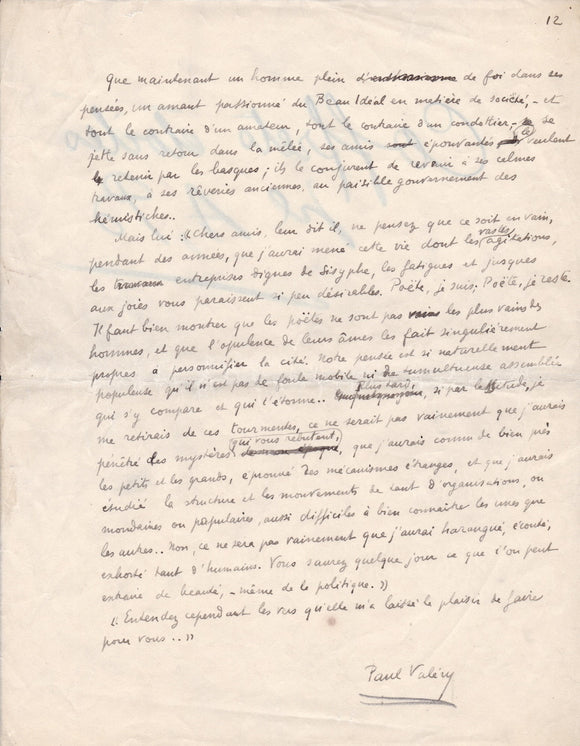 12
Que maintenant un homme plein de foi dans ses
pensées, un amant passionné du Beau Idéal en matière de société, – et
tout le contraire d'un amateur, tout le contraire d'un condottier – se
jette sans retour dans la mêlée, ses amis épouvantés veulent
le retenir par les basques ; ils le conjurent de revenir à ses calmes
travaux, à ses rêveries anciennes, au paisible gouvernement des
hémistiches..
Mais lui : « Chers amis, leur dit il, ne pensez pas que ce soit en vain,
pendant des années, que j'aurai mené cette vie dont les vastes agitations,
les entreprises dignes de Sisyphe, les fatigues et jusques
aux joies vous paraissent si peu désirables. Poëte, je suis ; Poëte, je reste.
Il faut bien montrer que les poëtes ne sont pas les plus vains des
hommes, et que l'opulence de leurs âmes les fait singulièrement
propres à personnifier la cité. Notre pensée est si naturellement
populeuse qu'il n'est pas de foule mobile ni de tumultueuse assemblée
qui s'y compare et qui l'étonne.. Plus tard, si par lassitude, je
me retirais de ces tourmentes, ce ne serait pas vainement que j'aurais
pénétré les mystères qui vous rebutent, que j'aurais connu de bien près
les petits et les grands, éprouvé des mécanismes étranges, et que j'aurais
étudié la structure et les mouvements de tant d'organisations, ou
mondaines ou populaires, aussi difficiles à bien connaître les unes que
les autres.. Non, ce ne sera pas vainement que j'aurai harangué, écouté,
exhorté tant d'humains. Vous saurez quelque jour ce que l'on peut
extraire de beauté, – même de la politique. »
« Entendez cependant les vers qu'elle m'a laissé le plaisir de faire
pour vous.. »
Paul Valéry